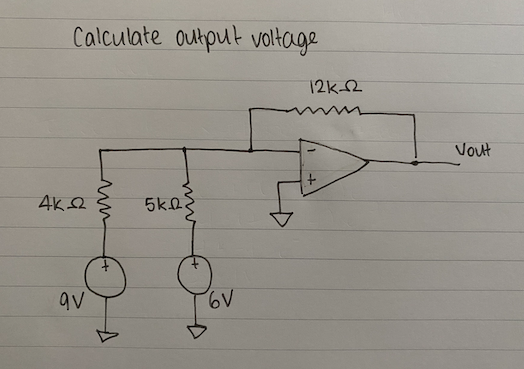 Calculate output voltage
12kΩ
-
+
Vout
4kΩ
5kΩ
+
+
9V
6V